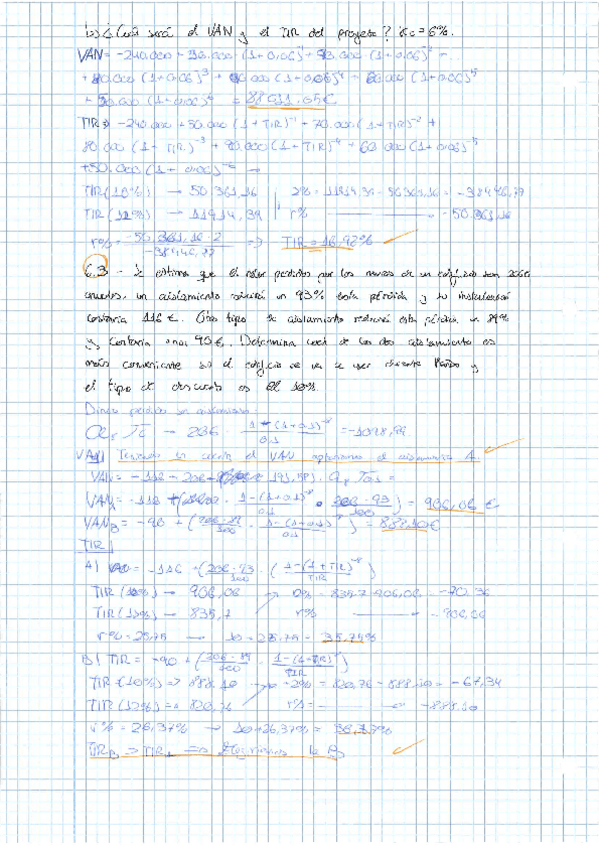 b) ¿Cuál será el VAN y el TIR del proyecto? Kc = 6%.
VAN = -240.000 + 50.000 (1+0,06)⁻¹ + (1+0,06)⁻²
+ 80.000 (1+0,06)⁻³ + 90.000 (1+0,06)⁻⁴ + 60.000 (1+0,06)⁻⁵
+ 50.000 (1+0,06)⁻⁶ = 88911,05€
TIR => -240.000 + 50.000 (1+TIR)⁻¹ + 70.000 (1+TIR)⁻² +
80.000 (1+TIR)⁻³ + 90.000 (1+TIR)⁻⁴ + 60.000 (1+0,06)⁻⁵
+50.000 (1+0,06)⁻⁶ →
TIR (10%) → 50.361,16 2% - 11914,39 - 50361,16 = -38446,77
TIR (12%) → 11914,39 r% -50.361,16
r% = -50.361,16 · 2 / -38446,77 => TIR = 16,92%
6.3 - Se estima que el valor perdido por los muros de un edificio son 206€
anuales, un aislamiento reducirá un 93% esta pérdida y su instalación
costaría 116€. Otro tipo de aislamiento reducirá esta pérdida un 89%
y costaría unos 90€. Determina cuál de los dos aislamientos es
más conveniente si el edificio se va a usar durante 8 años y
el tipo de descuento es el 10%.
Dinero perdido sin aislamiento:
→ 206 · 1-(1+0,1)⁻⁸ / 0,1 = -1098,99
VAN | Teniendo en cuenta el VAN optaríamos el aislamiento A
VAN = -116 - 206 191,58) · a₈ =
VAN_A = -116 + ( 1-(1+0,1)⁻⁸ / 0,1 · 206·93 / 100 ) = 906,06 €
VAN_B = -90 + ( 206·89 / 100 · 1-(1+0,1)⁻⁸ / 0,1 ) = 888,10€
TIR |
A) VAN = -116 + ( 206·93 / 100 · ( 1-(1+TIR)⁻⁸ / TIR )
TIR (10%) → 906,06 2% - 835,7-906,06 = -70,36
TIR (12%) → 835,7 r% -906,06
r% = 25,75 → 10+25,75 = 35,75%
B) TIR = -90 + ( 206·89 / 100 · 1-(1+TIR)⁻⁸ / TIR )
TIR (10%) => 888,10 -2% = 820,76 - 888,10 = -67,34
TIR (12%) => 820,76 r% = -888,10
r% = 26,37% → 10+26,37% = 36,37%
TIR_B > TIR_A => Elegiríamos la B